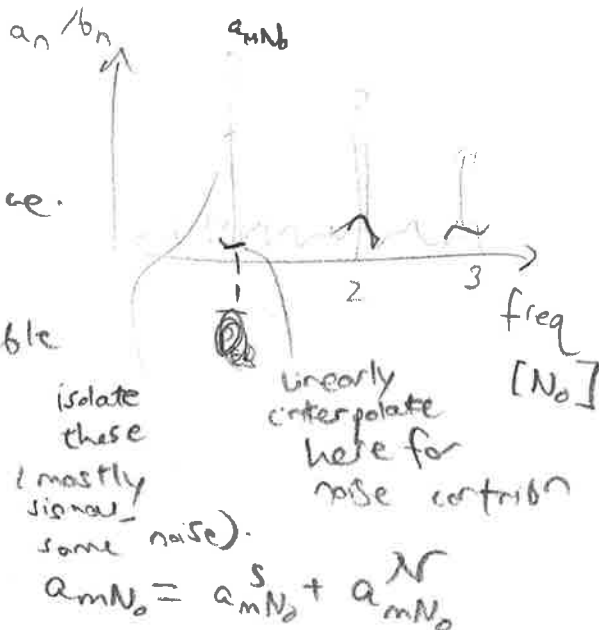 aₙ /bₙ
a_mN₀
ce.
2
3
freq
[N₀]
ble
isolate
these
(mostly
signal
some noise).
linearly
interpolate
here for
noise contribn
a_mN₀ = a^S_mN₀ + a^N_mN₀